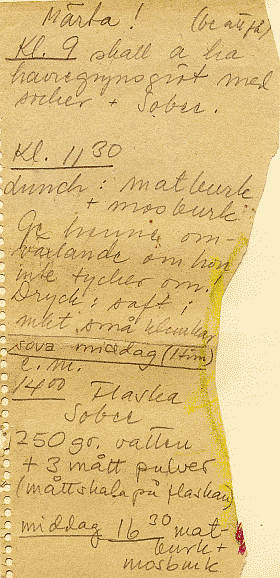 Märta! (be att få)
Kl. 9 skall a ha
havregrynsgröt med
socker + Sobee.
Kl. 11 30
Lunch: matburk
+ mosburk
Ge henne om-
växlande om hon
inte tycker om!
Dryck: saft i
små klunkar
sova middag (1 tim)
e.m.
14 00 Flaska
Sobee
250 gr. vatten
+ 3 mått pulver
(måttskala på flaskan)
middag 16 30 mat-
burk +
mosburk